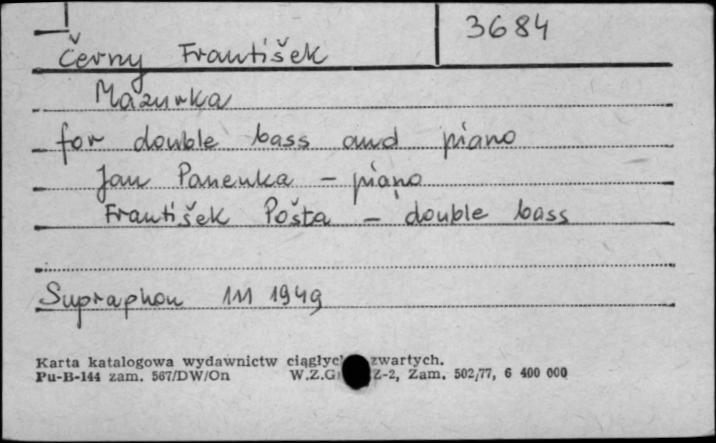 3684
Černy František
Mazurka
for double bass and piano
Jan Panenka – piano
František Pošta – double bass
Supraphon 1M 1949
Karta katalogowa wydawnictw zwartych.
Pu-B-144 zam. 567/DW/On Z-2, Zam. 502/77, 6 400 000